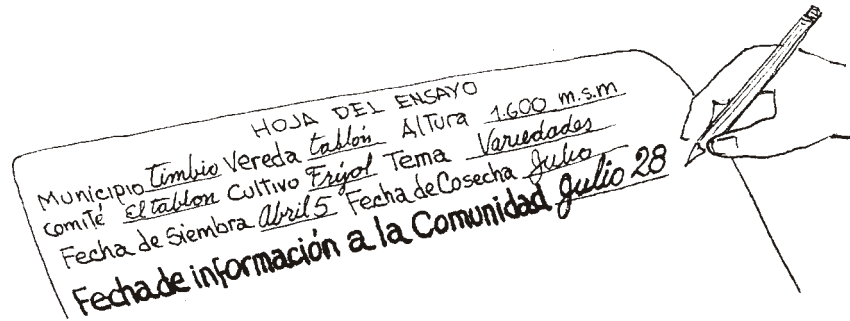 HOJA DEL ENSAYO
Municipio Timbio Vereda tablón Altura 1.600 m.s.m
comité El tablon Cultivo Frijol Tema Variedades
Fecha de Siembra Abril 5 Fecha de Cosecha Julio
Fecha de información a la Comunidad Julio 28